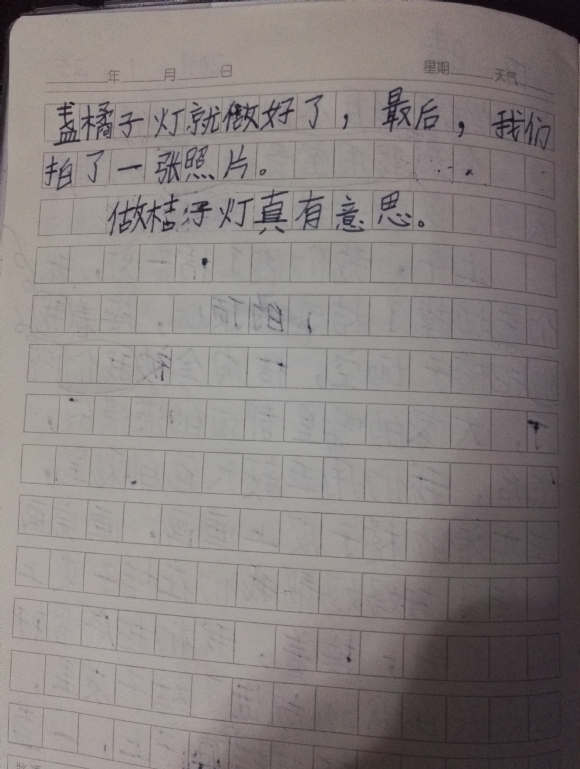 年 月 日 星期 天气
盏橘子灯就做好了，最后，我们
拍了一张照片。
做桔子灯真有意思。